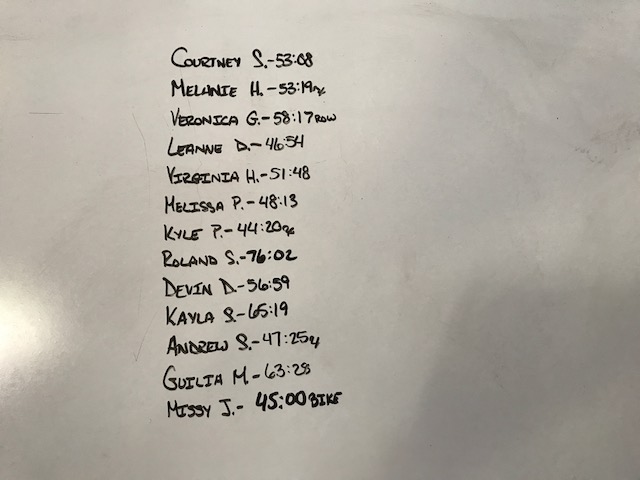 COURTNEY S.-53:08
MELANIE H.-53:19
VERONICA G.-58:17 ROW
LEANNE D.-46:54
VIRGINIA H.-51:48
MELISSA P.-48:13
KYLE P.-44:20
ROLAND S.-76:02
DEVIN D.-56:59
KAYLA S.-65:19
ANDREW S.-47:25
GUILIA M.-63:28
MISSY J.-45:00 BIKE